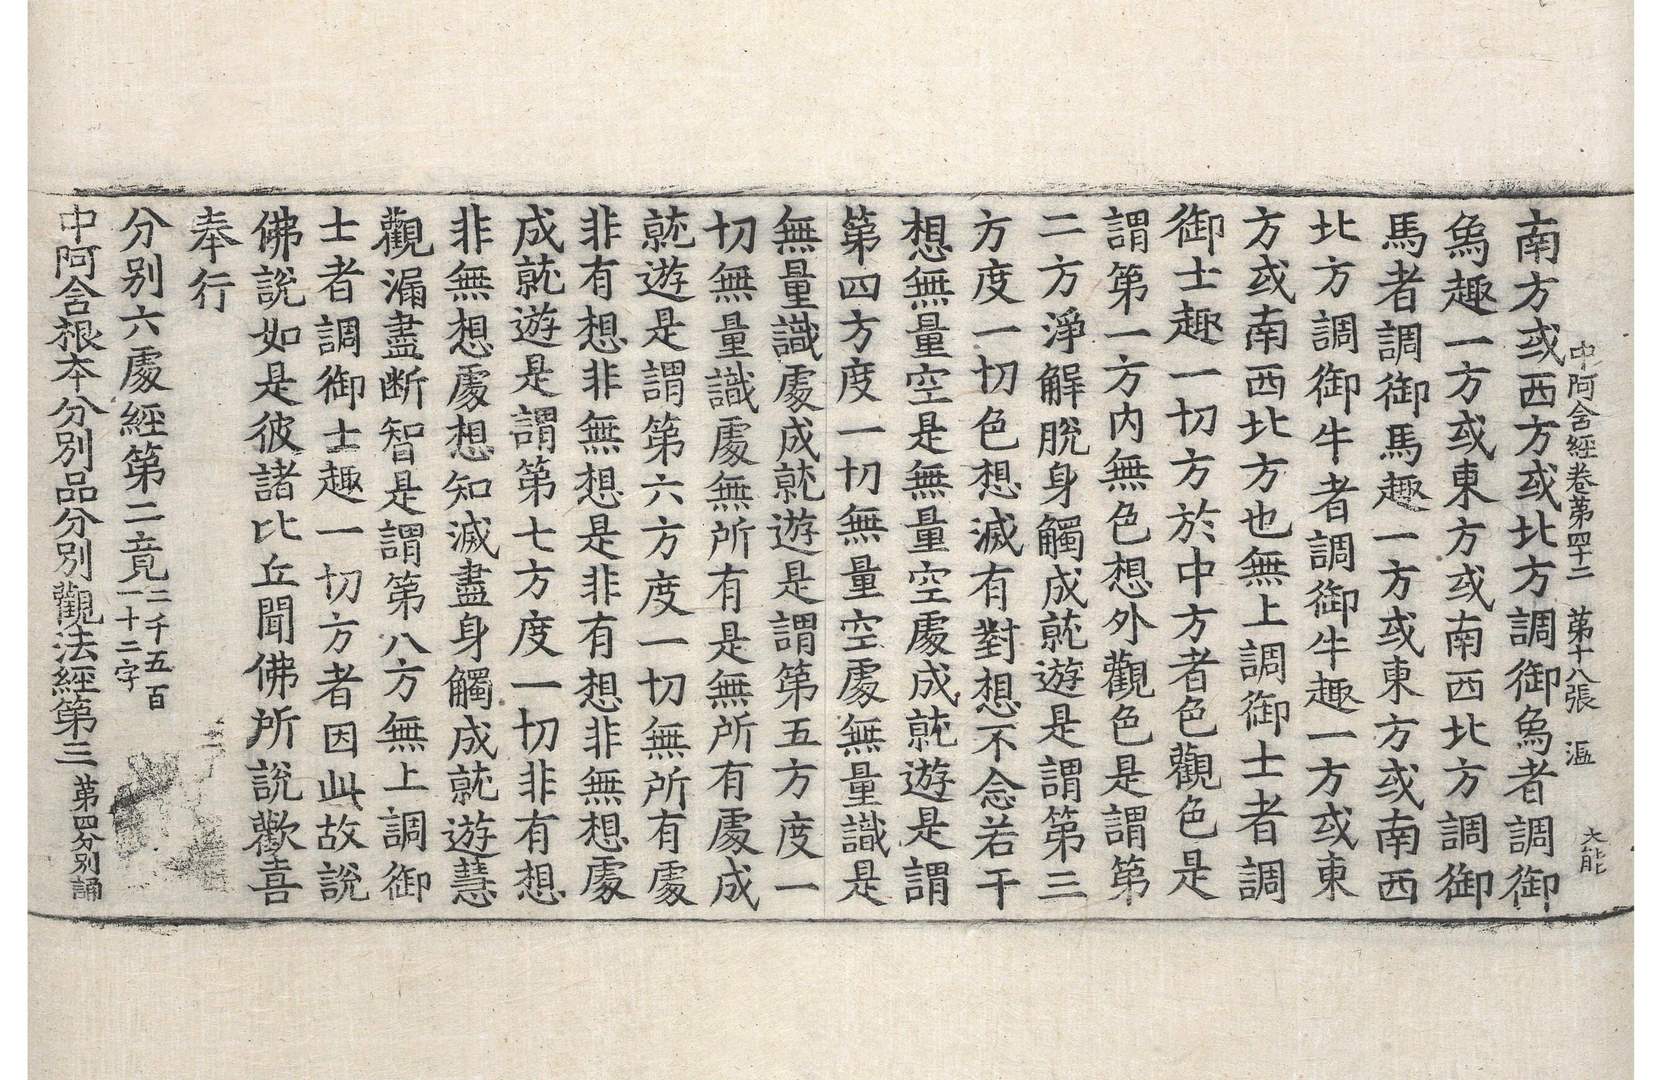 中阿含經卷第四十二　第十八張　溫
大能
南方或西方或北方調御象者調御
象趣一方或東方或南西北方調御
馬者調御馬趣一方或東方或南西
北方調御牛者調御牛趣一方或東
方或南西北方也無上調御士者調
御士趣一切方於中方者色觀色是
謂第一方内無色想外觀色是謂第
二方淨解脫身觸成就遊是謂第三
方度一切色想滅有對想不念若干
想無量空是無量空處成就遊是謂
第四方度一切無量空處無量識是
無量識處成就遊是謂第五方度一
切無量識處無所有是無所有處成
就遊是謂第六方度一切無所有處
非有想非無想是非有想非無想處
成就遊是謂第七方度一切非有想
非無想處想知滅盡身觸成就遊慧
觀漏盡断智是謂第八方無上調御
士者調御士趣一切方者因此故說
佛說如是彼諸比丘聞佛所說歡喜
奉行
分別六處經第二竟二千五百一十二字
中阿含根本分別品分別觀法經第三第四分別誦